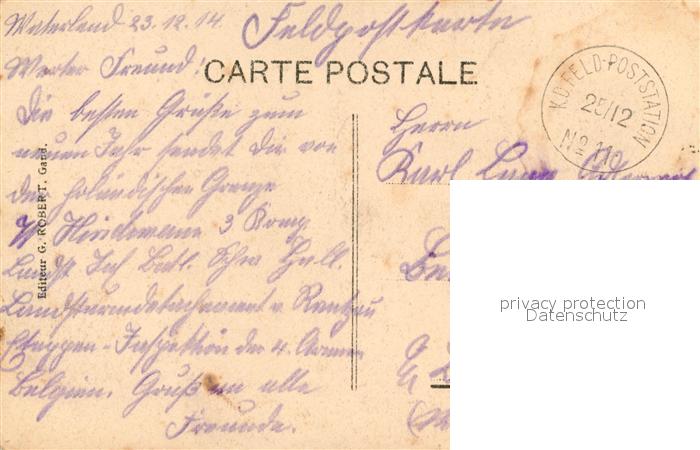 Waterland 23.12.14. Feldpostkarte
Werter Freund!
CARTE POSTALE
Die besten Grüße zum
neuen Jahr sendet Dir von
der holändischen Grenze
Hindemann 3 Komp
Landst. Inf. Batl. Hall.
Landsturmdetachement v. Rantzau
Etappen-Inspektion der 4. Armee
Belgien. Gruß an alle
Freunde.
Editeur G. ROBERT. Gand.
K.D. FELD-POSTSTATION
25/12
No 110
Herrn
Karl
privacy protection
Datenschutz